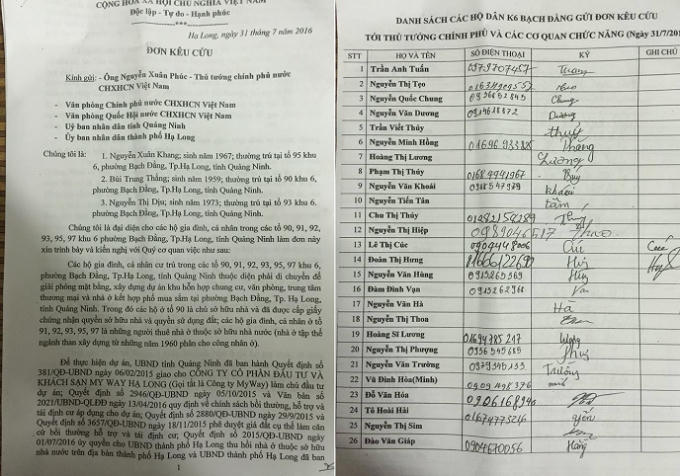 CỘNG HÒA XÃ HỘI CHỦ NGHĨA VIỆT NAM
Độc lập - Tự do - Hạnh phúc
Hạ Long, ngày 31 tháng 7 năm 2016
ĐƠN KÊU CỨU
Kính gửi: - Ông Nguyễn Xuân Phúc - Thủ tướng chính phủ nước
CHXHCN Việt Nam
- Văn phòng Chính phủ nước CHXHCN Việt Nam
- Văn phòng Quốc Hội nước CHXHCN Việt Nam
- Uỷ ban nhân dân tỉnh Quảng Ninh
- Ủy ban nhân dân thành phố Hạ Long
Chúng tôi là: 1. Nguyễn Xuân Khang; sinh năm 1967; thường trú tại tổ 95 khu
6, phường Bạch Đằng, Tp.Hạ Long, tỉnh Quảng Ninh.
2. Bùi Trung Thắng; sinh năm 1959; thường trú tại tổ 90 khu 6,
phường Bạch Đằng, Tp.Hạ Long, tỉnh Quảng Ninh.
3. Nguyễn Thị Dịu; sinh năm 1973; thường trú tại tổ 93 khu 6,
phường Bạch Đằng, Tp.Hạ Long, tỉnh Quảng Ninh.
Chúng tôi là đại diện cho các hộ gia đình, cá nhân trong các tổ 90, 91, 92,
93, 95, 97 khu 6 phường Bạch Đằng, Tp.Hạ Long, tỉnh Quảng Ninh làm đơn này
xin trình bày và kiến nghị với Quý cơ quan việc như sau:
Các hộ gia đình, cá nhân cư trú trong các tổ 90, 91, 92, 93, 95, 97 khu 6,
phường Bạch Đằng, Tp.Hạ Long, tỉnh Quảng Ninh thuộc diện phải di chuyển để
giải phóng mặt bằng, xây dựng dự án khu hỗn hợp chung cư, văn phòng, trung tâm
thương mại và nhà ở kết hợp phố mua sắm tại phường Bạch Đằng, Tp. Hạ Long,
tỉnh Quảng Ninh. Trong đó các hộ ở tổ 90 là chủ sở hữu nhà và đã được cấp giấy
chứng nhận quyền sở hữu nhà và quyền sử dụng đất; các hộ gia đình, cá nhân ở tổ
91, 92, 93, 95, 97 là những người thuê nhà ở thuộc sở hữu nhà nước (nhà ở tập thể
ngành than xây dựng từ những năm 1960 phân cho công nhân ở).
Để thực hiện dự án, UBND tỉnh Quảng Ninh đã ban hành Quyết định số
381/QĐ-UBND ngày 06/02/2015 giao cho CÔNG TY CỔ PHẦN ĐẦU TƯ VÀ
KHÁCH SẠN MY WAY HẠ LONG (Gọi tắt là Công ty MyWay) làm chủ đầu tư
dự án; Quyết định số 2946/QĐ-UBND ngày 05/10/2015 và Văn bản số
2021/UBND-QLĐĐ ngày 13/04/2016 quy định về chính sách bồi thường, hỗ trợ và
tái định cư áp dụng cho dự án; Quyết định số 2880/QĐ-UBND ngày 29/9/2015 và
Quyết định số 3657/QĐ-UBND ngày 18/11/2015 phê duyệt giá đất cụ thể làm căn
cứ bồi thường hỗ trợ và tái định cư; Quyết định số 2015/QĐ-UBND ngày
01/07/2016 ủy quyền cho UBND thành phố Hạ Long thu hồi nhà ở thuộc sở hữu
nhà nước trên địa bàn thành phố Hạ Long và UBND thành phố Hạ Long đã ban
1
DANH SÁCH CÁC HỘ DÂN K6 BẠCH ĐẰNG GỬI ĐƠN KÊU CỨU
TỚI THỦ TƯỚNG CHÍNH PHỦ VÀ CÁC CƠ QUAN CHỨC NĂNG (Ngày 31/7/201
STT HỌ VÀ TÊN SỐ ĐIỆN THOẠI KÝ GHI CHÚ
1 Trần Anh Tuấn 0979707457
2 Nguyễn Thị Tẹo
3 Nguyễn Quốc Chung 0936652845 Chung
4 Nguyễn Văn Dương 0914618872 Dương
5 Trần Viết Thủy thuỷ
6 Nguyễn Minh Hồng
7 Hoàng Thị Lương Lương
8 Phạm Thị Thủy 01684991967
9 Nguyễn Văn Khoái khoái
10 Nguyễn Tiến Tân
11 Chu Thị Thủy
12 Nguyễn Thị Hiệp 0989046517
13 Lê Thị Cúc 0904448006 Cúc
14 Đoàn Thị Hưng
15 Nguyễn Văn Hùng 0915265569
16 Đàm Đình Vạn 0915262968 Vạn
17 Nguyễn Văn Hà Hà
18 Nguyễn Thị Thoa
19 Hoàng Sĩ Lương 01694785217
20 Nguyễn Thị Phượng 0936545685
21 Nguyễn Văn Trường 0979345133 Trường
22 Vũ Đình Hòa(Minh) 0909498376
23 Đỗ Văn Hóa 0906168940
24 Tô Hoài Hải 01674775216
25 Nguyễn Thị Sim
26 Đào Văn Giáp 0904670056